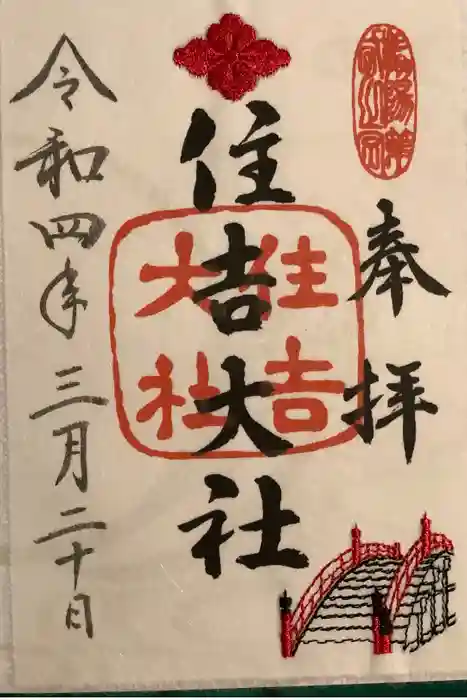 奉拝
住吉大社
住吉大社
令和四年三月二十日